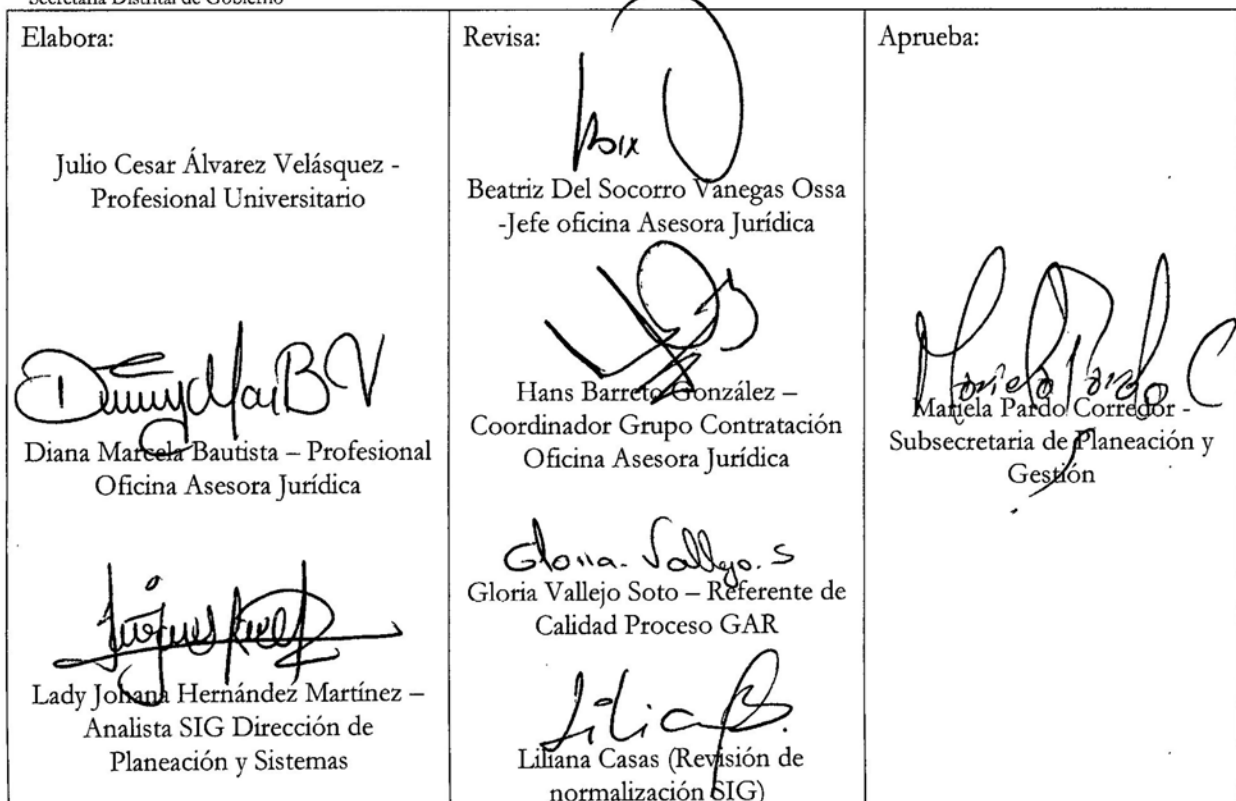 Secretaría Distrital de Gobierno
Elabora:
Julio Cesar Álvarez Velásquez -
Profesional Universitario
Diana Marcela Bautista – Profesional
Oficina Asesora Jurídica
Lady Johana Hernández Martínez –
Analista SIG Dirección de
Planeación y Sistemas
Revisa:
Beatriz Del Socorro Vanegas Ossa
-Jefe oficina Asesora Jurídica
Hans Barreto González –
Coordinador Grupo Contratación
Oficina Asesora Jurídica
Gloria. Vallejo. S
Gloria Vallejo Soto – Referente de
Calidad Proceso GAR
Liliana Casas (Revisión de
normalización SIG)
Aprueba:
Mariela Pardo C
Mariela Pardo Corredor -
Subsecretaria de Planeación y
Gestión